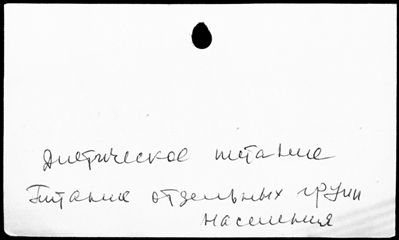 Диетическое питание
Питание отдельных групп
населения